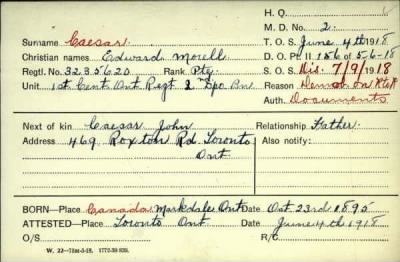 H. Q.
M. D. No. 2.
Surname Caesar T. O. S. June 4th 1918
Christian names Edward Morell D. O. Pt. II 156 of 5-6-18
Regtl. No. 3235620 Rank Pte. S. O. S. Dis. 7/9/1918
Unit 1st Cent. Ont. Regt 2nd Dpo. Bn. Reason Demob
Auth. Documents
Next of kin Caesar John Relationship Father
Address 469 Roxton Rd. Toronto Also notify:
Ont
BORN—Place Canada Markdale Ont Date Oct. 23rd 1895
ATTESTED—Place Toronto Ont Date June 4th 1918
O/S R/C
W. 22—75m-5-18. 1772-39 839.